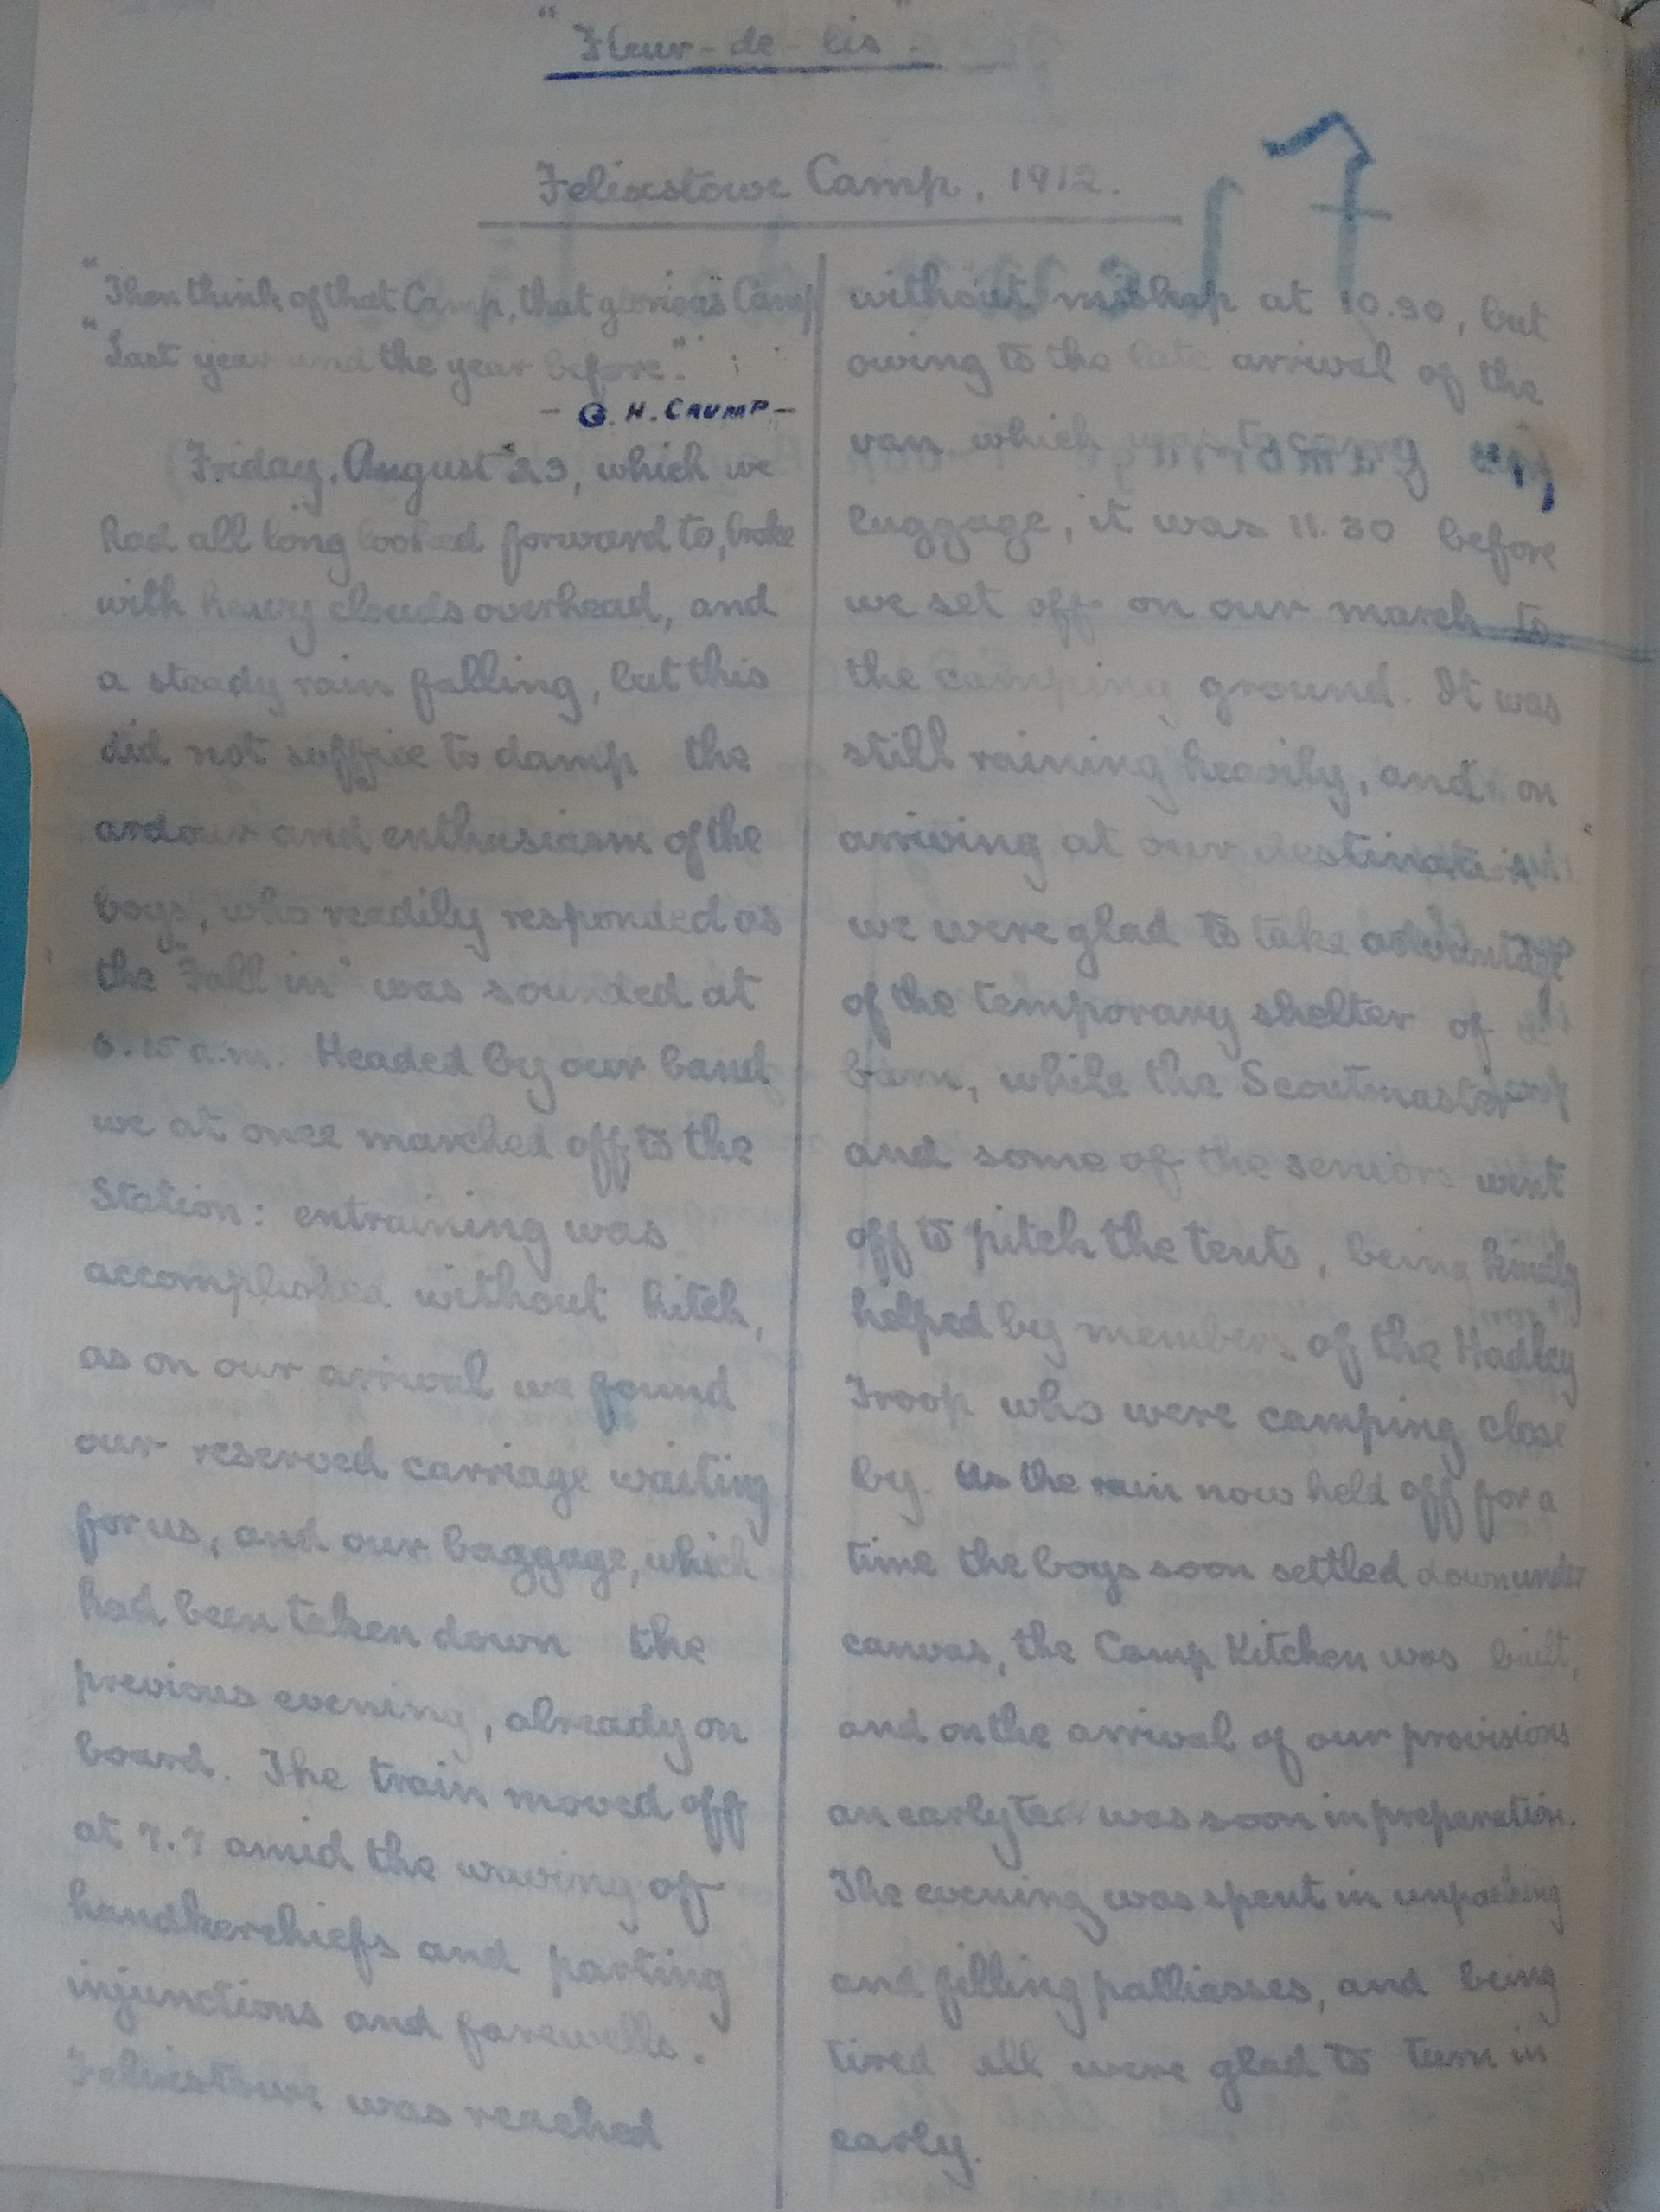 "Fleur-de-lis".
Felixstowe Camp, 1912.
"Then think of that Camp, that glorious Camp
"Last year and the year before."
- G. H. CRUMP -
Friday, August 23, which we
had all long looked forward to, broke
with heavy clouds overhead, and
a steady rain falling, but this
did not suffice to damp the
ardour and enthusiasm of the
boys, who readily responded as
the "Fall in" was sounded at
6.15 a.m. Headed by our band
we at once marched off to the
Station: entraining was
accomplished without hitch,
as on our arrival we found
our reserved carriage waiting
for us, and our baggage, which
had been taken down the
previous evening, already on
board. The train moved off
at 7.7 amid the waving of
handkerchiefs and parting
injunctions and farewells.
Felixstowe was reached
without mishap at 10.30, but
owing to the late arrival of the
van which was to carry our
luggage, it was 11.30 before
we set off on our march to
the camping ground. It was
still raining heavily, and on
arriving at our destination
we were glad to take advantage
of the temporary shelter of a
barn, while the Scoutmaster
and some of the seniors went
off to pitch the tents, being kindly
helped by members of the Hadley
Troop who were camping close
by. As the rain now held off for a
time the boys soon settled down under
canvas, the Camp Kitchen was built,
and on the arrival of our provisions
an early tea was soon in preparation.
The evening was spent in unpacking
and filling palliasses, and being
tired all were glad to turn in
early.